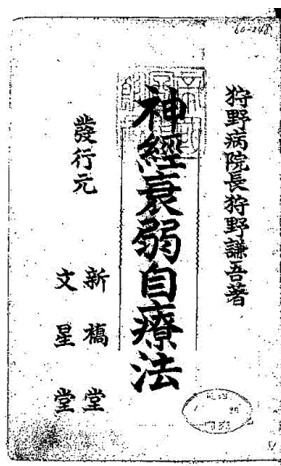 60-248
狩野病院長狩野謙吾著
神經衰弱自療法
發行元
新橋堂
文星堂